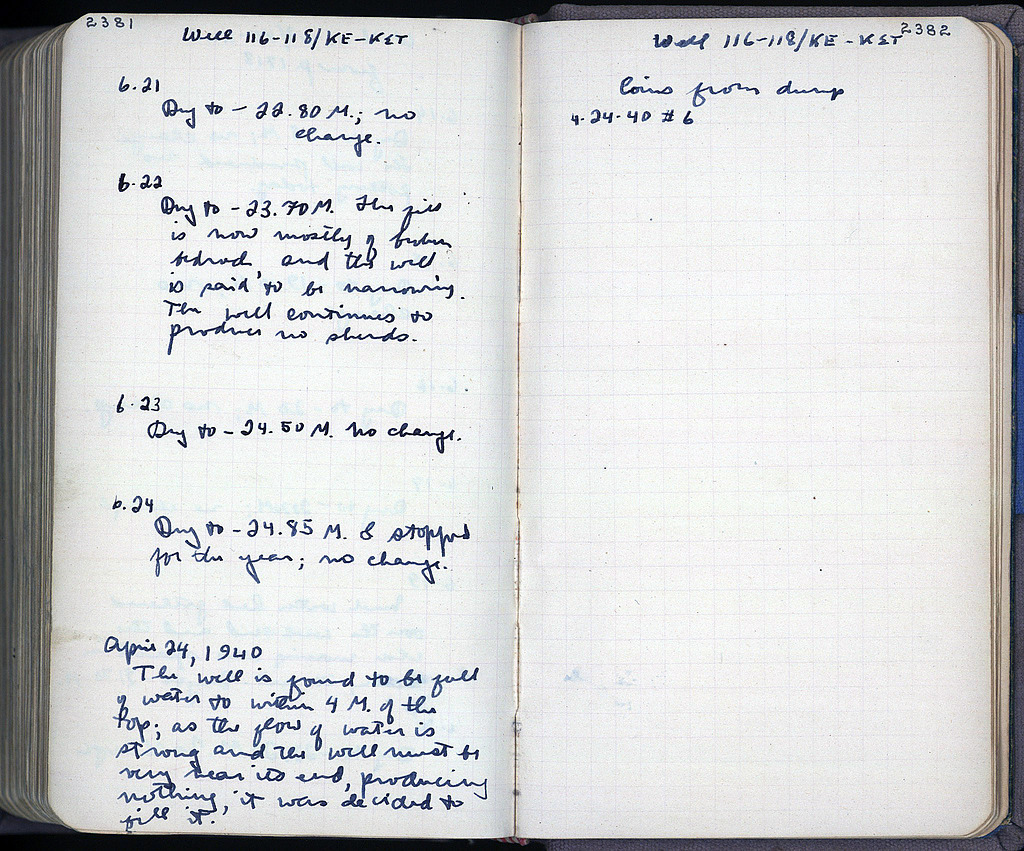 2381
Well 116-118/KE-KET
6.21
Dug to -22.80 M.; no
change.
6.22
Dug to -23.70 M. The fill
is now mostly of broken
bedrock, and the well
is said to be narrowing.
The well continues to
produce no sherds.
6.23
Dug to -24.50 M. No change.
6.24
Dug to -24.85 M. & stopped
for the year; no change.
April 24, 1940
The well is found to be full
of water to within 4 M. of the
top; as the flow of water is
strong and the well must be
very near its end, producing
nothing, it was decided to
fill it.
2382
Well 116-118/KE-KET
Coins from dump
4-24-40 #6